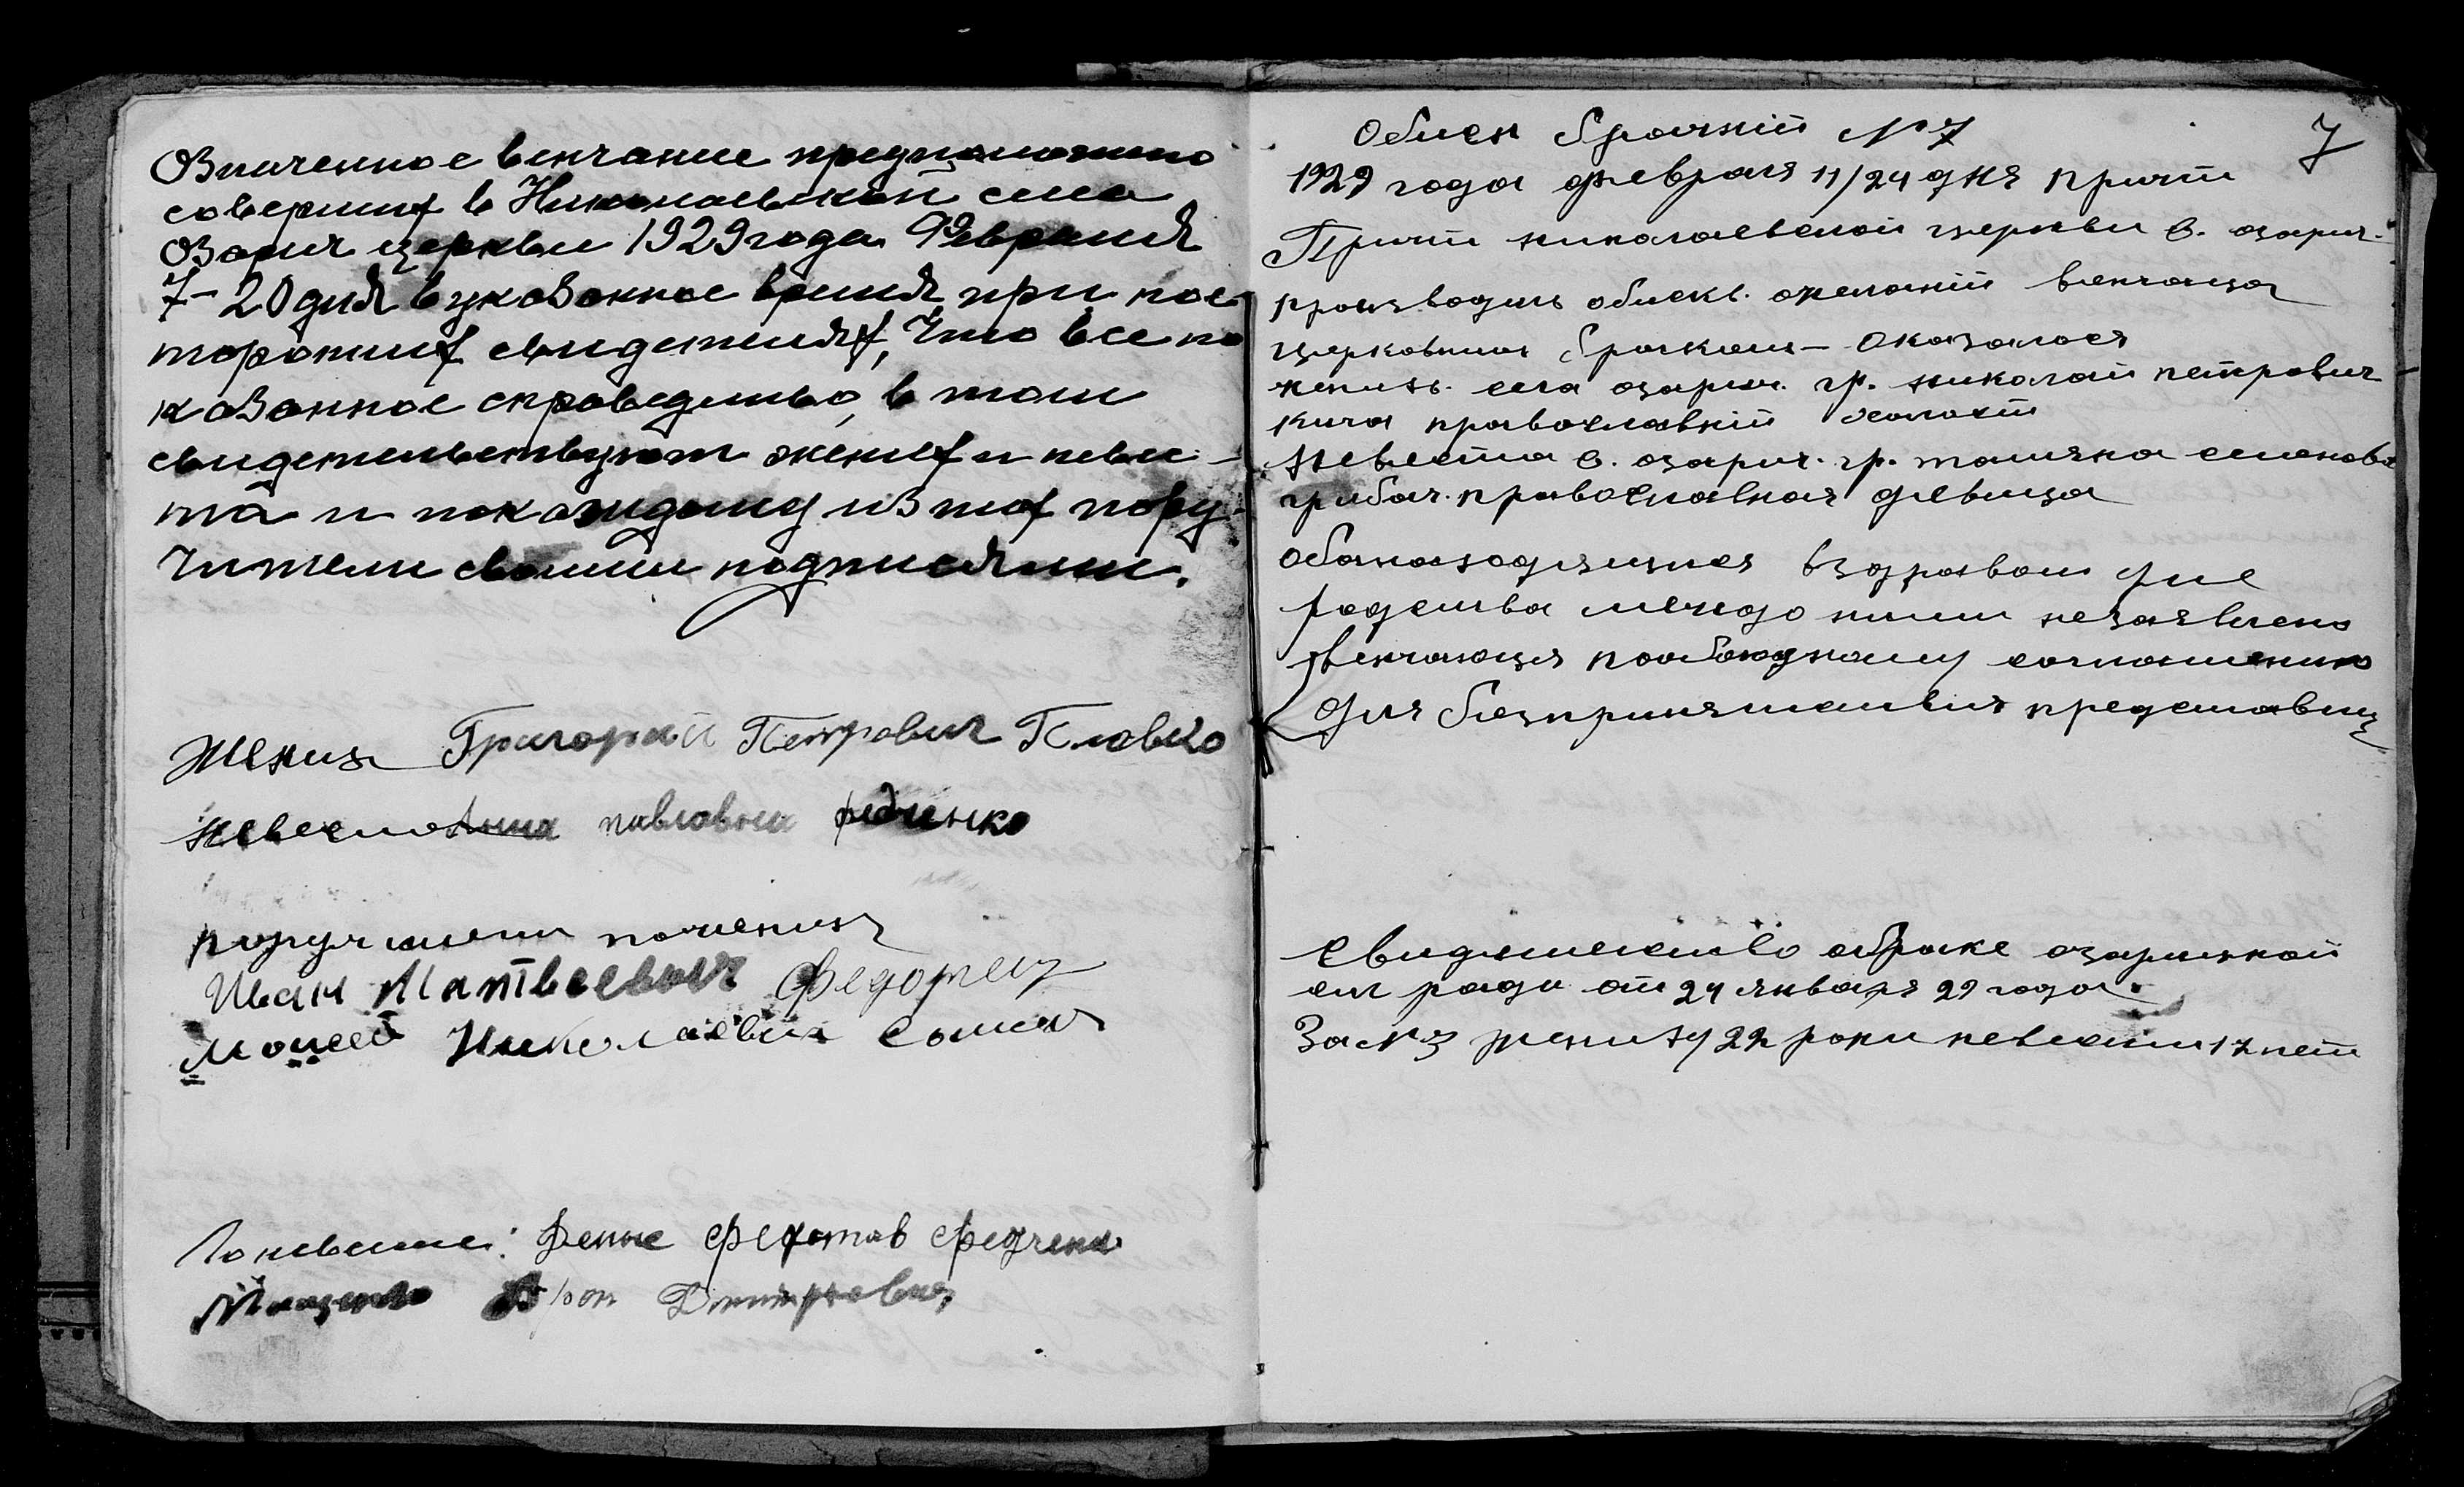 Озниченное венчание предположено
совершит в Николаевской села
Озарич церкви 1929 года Февраля
7-20 дня в указонное время при пос
торонних свидетелях, что все по
казонное справедливо, в том
свидетельствуют жених и невес-
та и по каждому из них пору-
чители своими подписями.
Жених Григорий Петрович Плавко
Невеста Анна павловна
поручители по жениху
Иван Матвеевич Федорец
Моисей Николаевич
По невесте: Федотов
Дмитровиц
Обиск брачний № 7
7
1929 года февраля 11/24 дня причт
Причт николаевской церкви с. озарич.
производил обиск. желаний венчаца
церковним браком - оказалося
жених. села озарич. гр. николай петрович
кича православний холост
Невеста с. озарич. гр. семенова
грибач. православная девица
оба находяцися вздравом уме
родства мечидо ними незаявлено
венчаюця пообоюдному согласению
Для безпринятствия представиц
Свидетелство обраке озаричкой
сил ради от 24 января 29 года.
За № 3 жениху 22 роки невести 17 лет